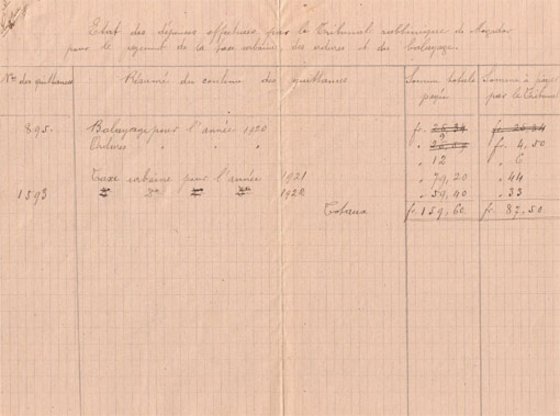 Etat des dépenses effectuées par le Tribunal rabbinique de Mogador
pour le payement de la taxe urbaine, des ordures et du balayage.
Nos des quittances Résumé du contenu des quittances Somme totale payée Somme à payer par le Tribunal
895. Balayage pour l'année 1920 fr. 26.34 fr. 26.34
Ordures " " " " 9 fr. 4,50
" 12 " 6
Taxe urbaine pour l'année 1921 " 79,20 " 44
1593 1922 " 59,40 " 33
Totaux fr. 159,60 fr. 87,50